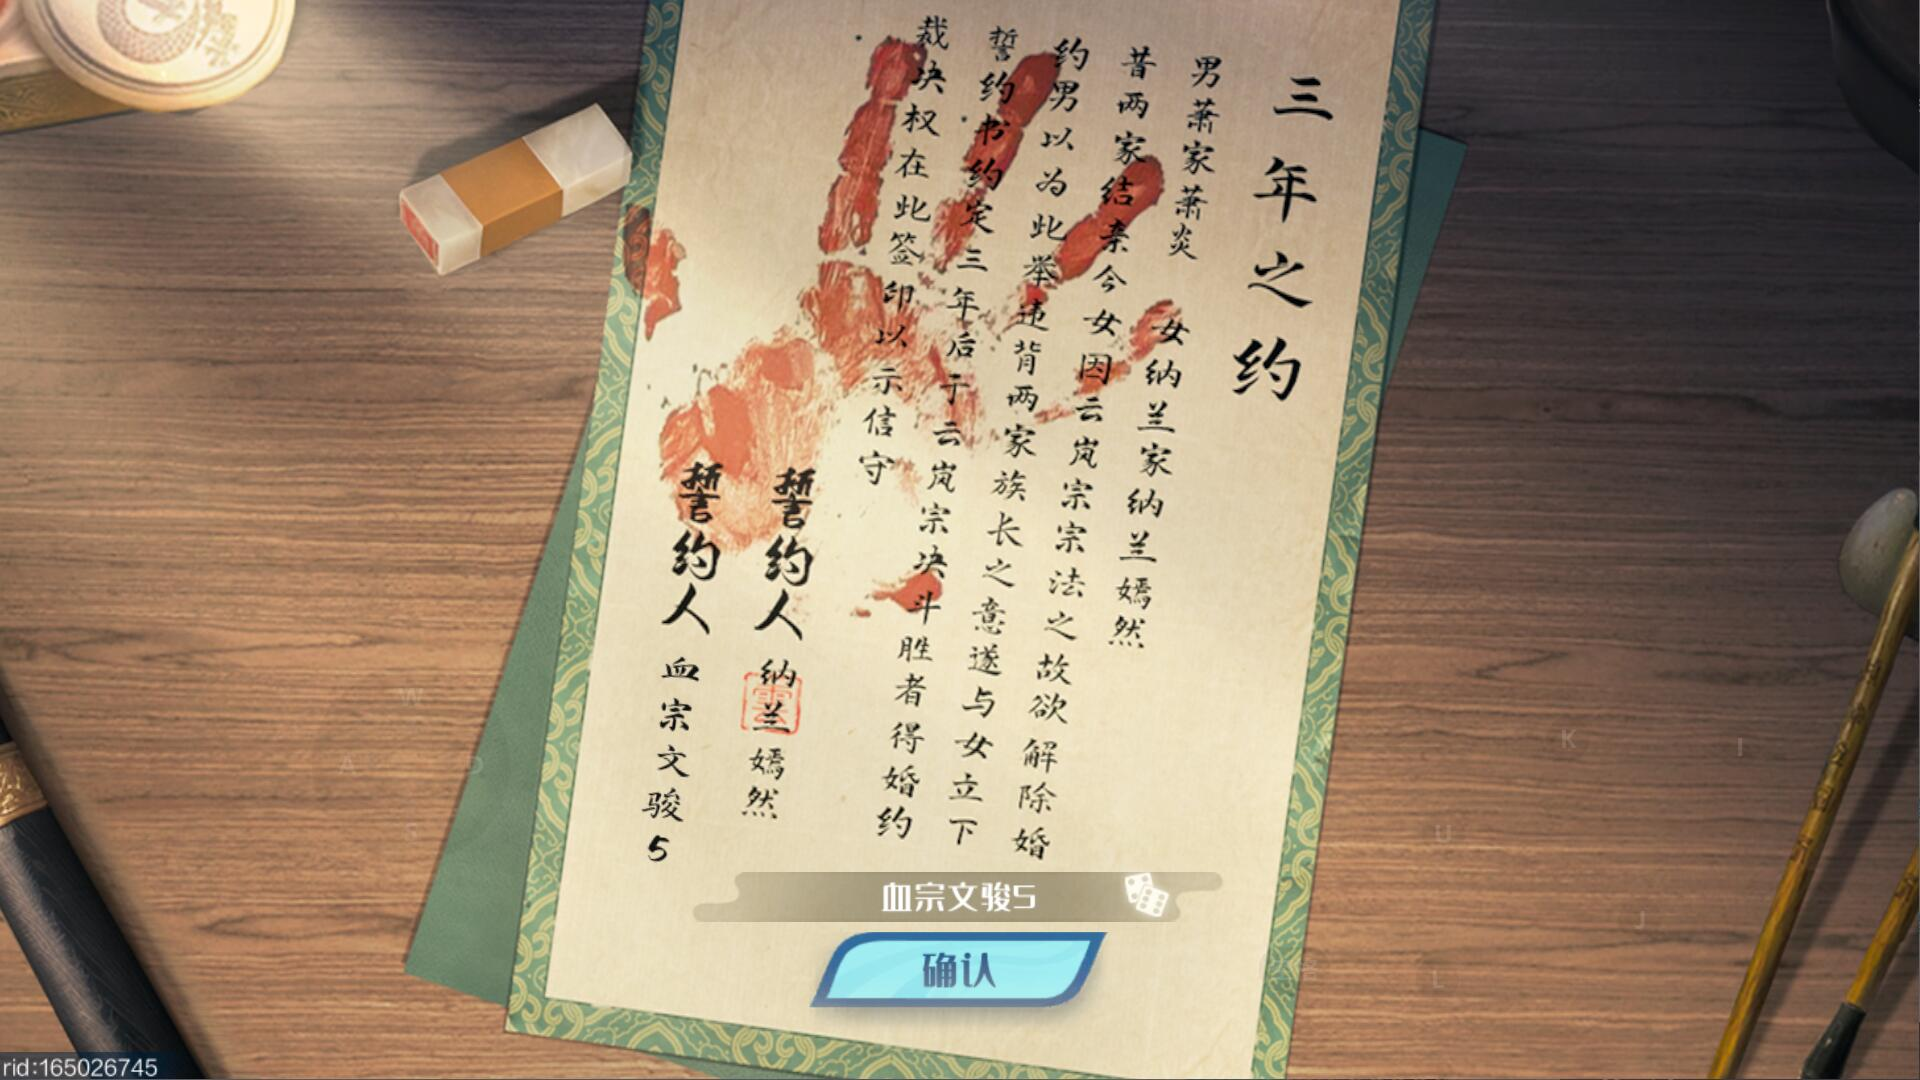 三年之约
男萧家萧炎 女纳兰家纳兰嫣然
昔两家结亲今女因云岚宗宗法之故欲解除婚
约男以为此举违背两家族长之意遂与女立下
誓约书约定三年后于云岚宗决斗胜者得婚约
裁决权在此签印以示信守
誓约人 纳兰嫣然
誓约人 血宗文骏5
血宗文骏5
确认
rid:165026745
W
A
D
S
K
I
U
J
L